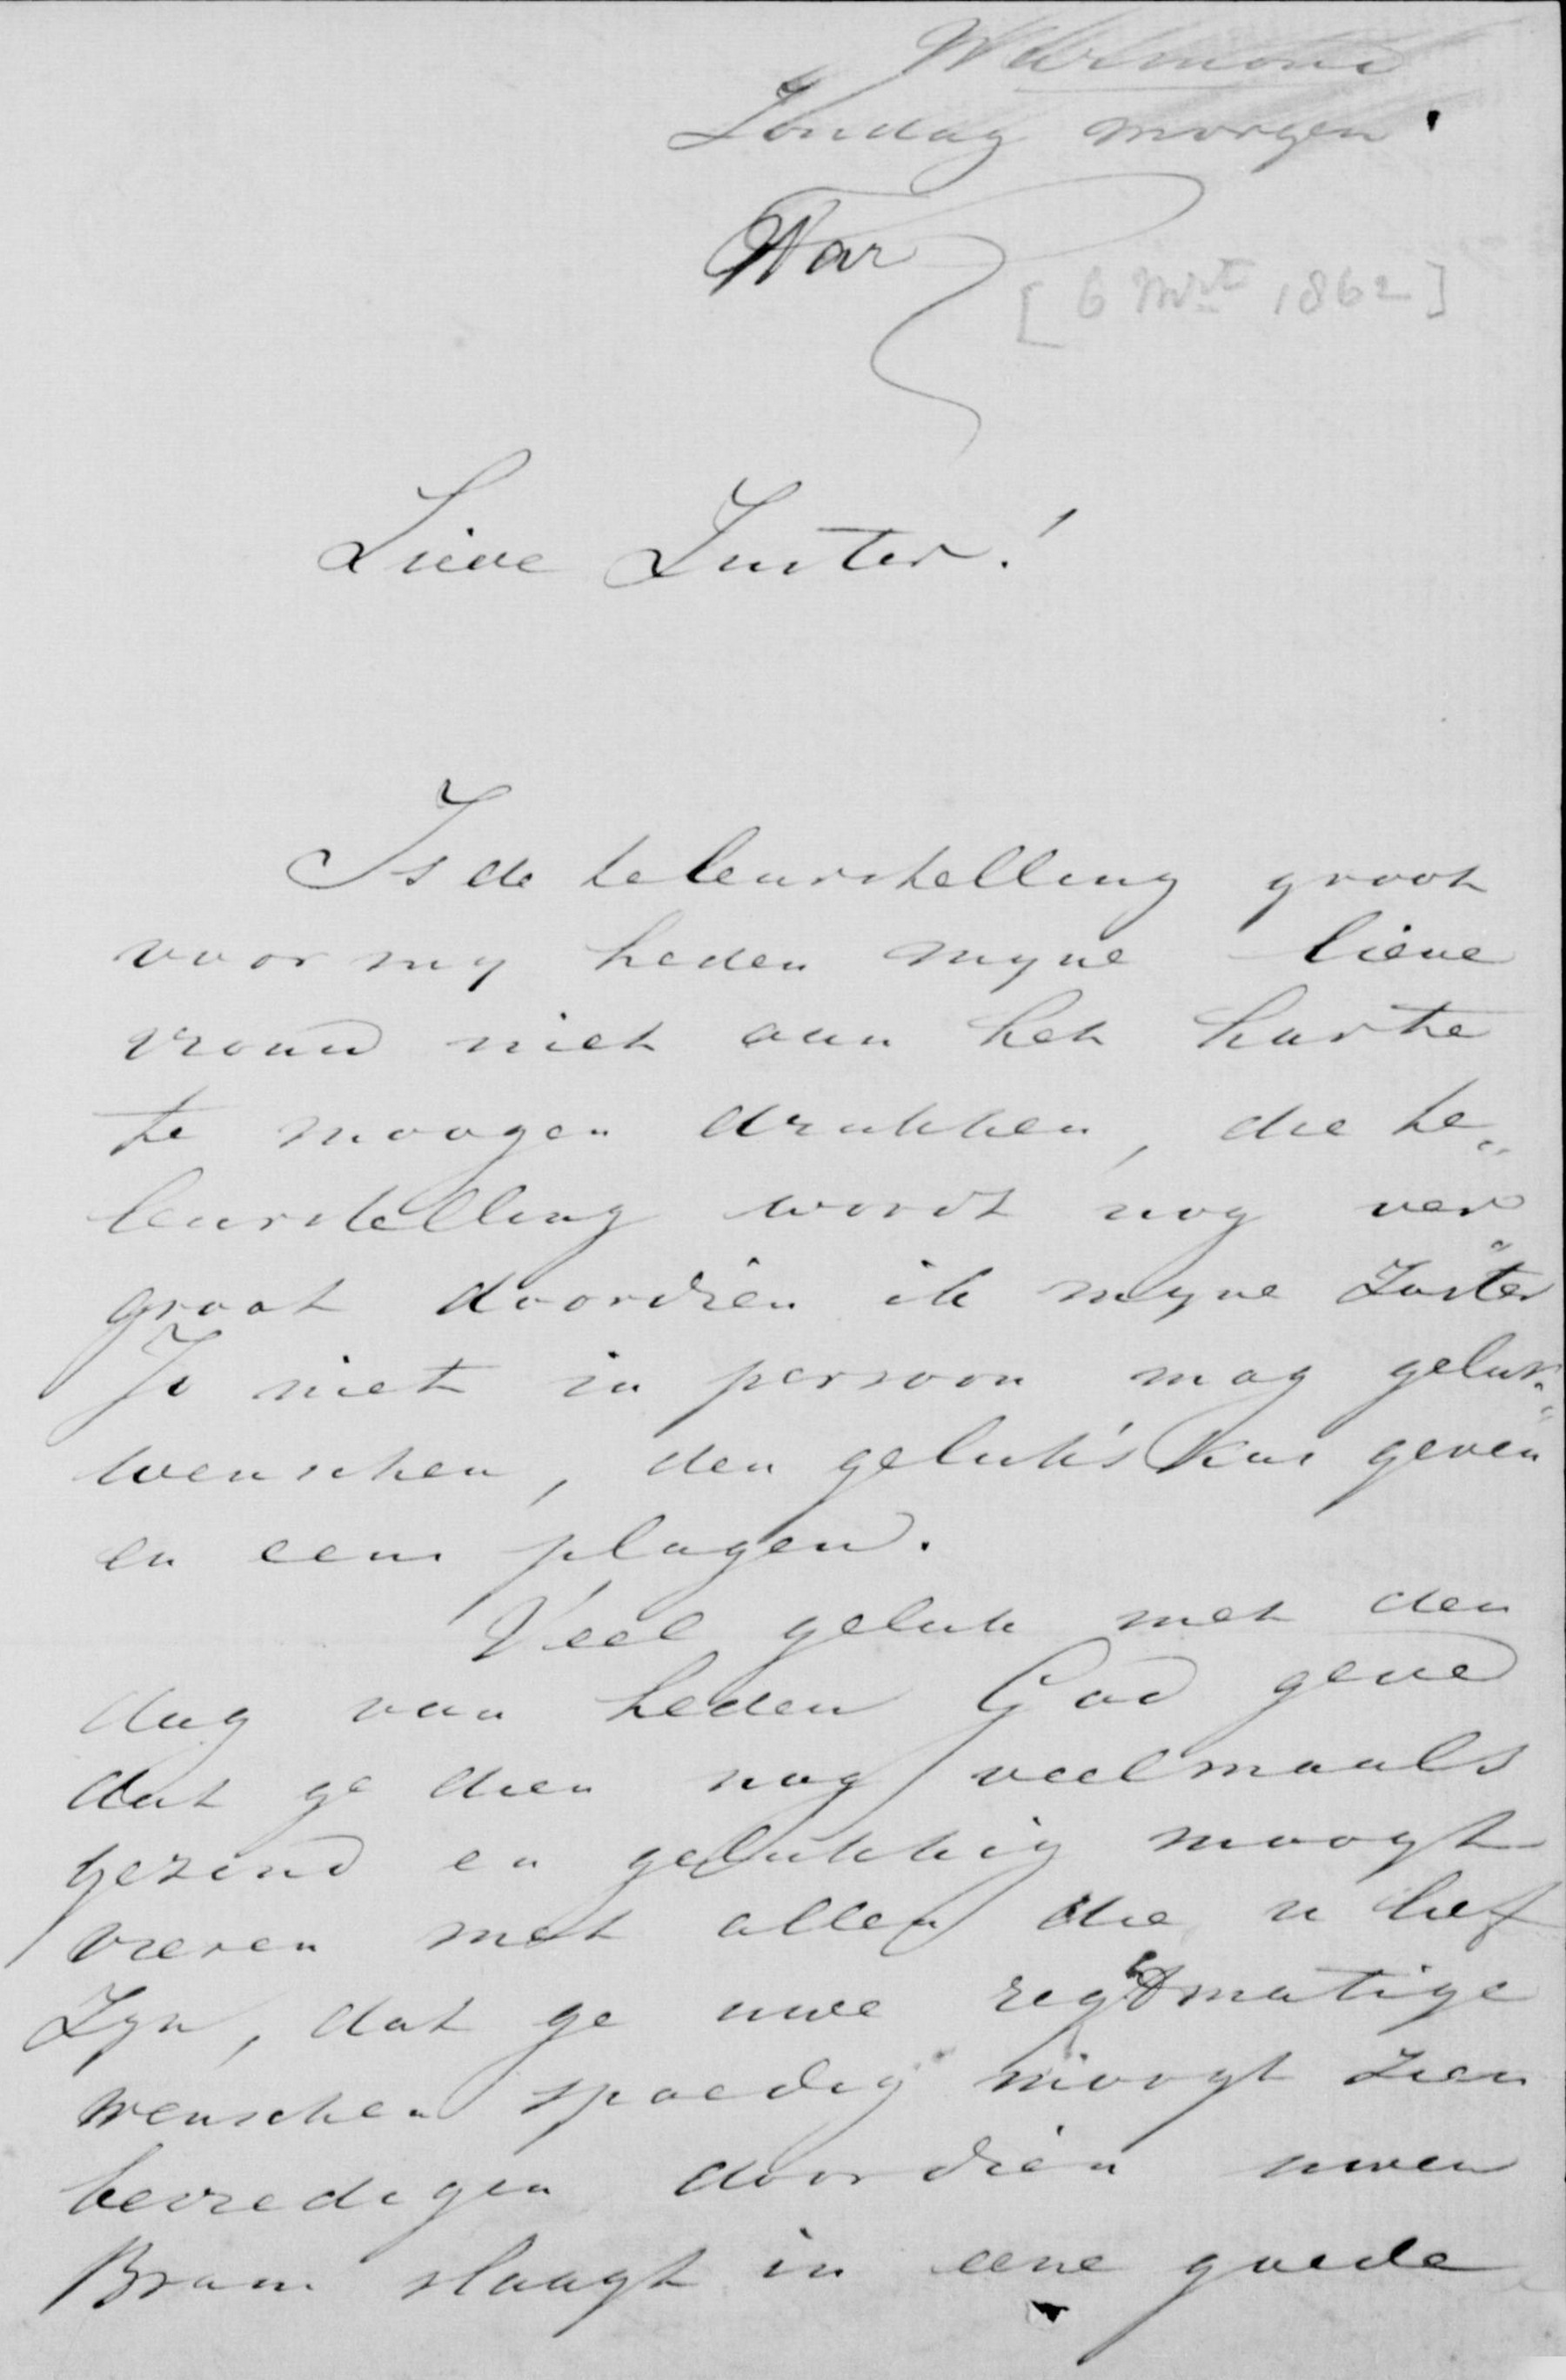 Warmond
Zondag morgen.
War
[6 Mrt 1862]
Lieve Zuster!
Is de teleurstelling groot
voor my heden myne lieve
vrouw niet aan het harte
te moogen drukken, die te„
leurstelling wordt nog ver„
groot doordien ik myne Zuster
Jo niet in persoon mag geluk„
wenschen, den geluk's kus geven
en eens plagen.
Veel geluk met den
dag van heden God geve
dat ge dien nog veelmaals
gezond en gelukkig moogt
vieren met allen die u lief
Zyn, dat ge uwe regtmatige
wenschen spoedig moogt zien
bevredigen doordien uwen
Bram slaagt in eene goede